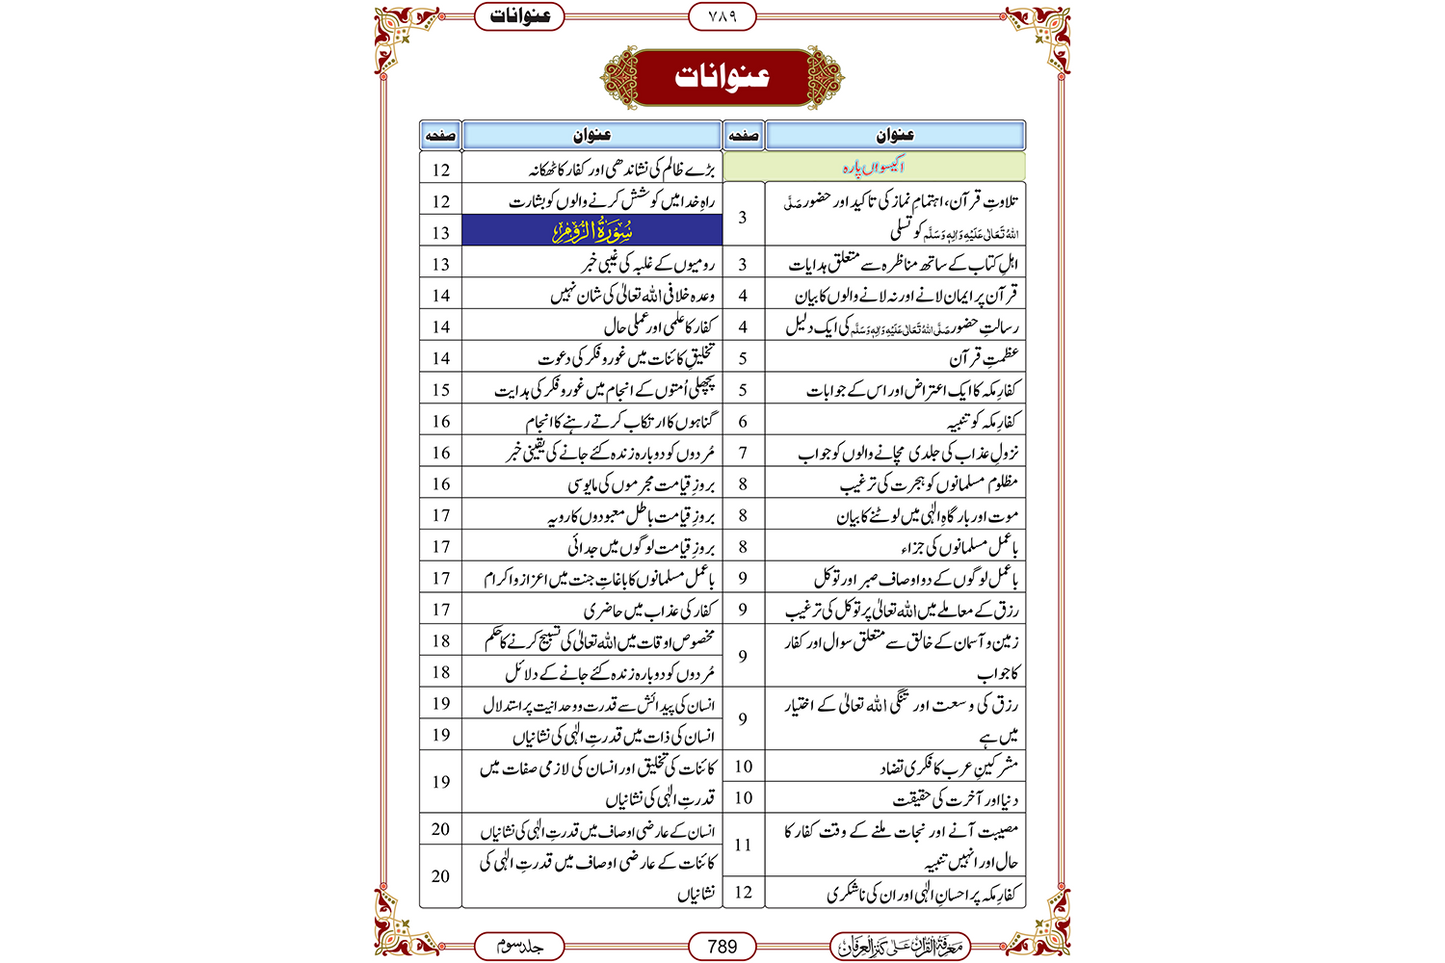 عنوانات
۷۸۹
عنوانات
عنوان صفحہ
اکیسواں پارہ
تلاوتِ قرآن، اہتمامِ نماز کی تاکید اور حضور صَلَّی
اللہُ تَعَالٰی عَلَیْہِ وَاٰلِہٖ وَسَلَّم کو تسلی 3
اہلِ کتاب کے ساتھ مناظرہ سے متعلق ہدایات 3
قرآن پر ایمان لانے اور نہ لانے والوں کا بیان 4
رسالتِ حضور صَلَّی اللہُ تَعَالٰی عَلَیْہِ وَاٰلِہٖ وَسَلَّم کی ایک دلیل 4
عظمتِ قرآن 5
کفارِ مکہ کا ایک اعتراض اور اس کے جوابات 5
کفارِ مکہ کو تنبیہ 6
نزولِ عذاب کی جلدی مچانے والوں کو جواب 7
مظلوم مسلمانوں کو ہجرت کی ترغیب 8
موت اور بارگاہِ الٰہی میں لوٹنے کا بیان 8
باعمل مسلمانوں کی جزاء 8
باعمل لوگوں کے دو اوصاف صبر اور توکل 9
رزق کے معاملے میں اللہ تعالیٰ پر توکل کی ترغیب 9
زمین و آسمان کے خالق سے متعلق سوال اور کفار
کا جواب 9
رزق کی وسعت اور تنگی اللہ تعالیٰ کے اختیار
میں ہے 9
مشرکینِ عرب کا فکری تضاد 10
دنیا اور آخرت کی حقیقت 10
مصیبت آنے اور نجات ملنے کے وقت کفار کا
حال اور انہیں تنبیہ 11
کفارِ مکہ پر احسانِ الٰہی اور ان کی ناشکری 12
عنوان صفحہ
بڑے ظالم کی نشاندھی اور کفار کا ٹھکانہ 12
راہِ خدا میں کوشش کرنے والوں کو بشارت 12
سُوْرَۃُ الرُّوْمِ 13
رومیوں کے غلبہ کی غیبی خبر 13
وعدہ خلافی اللہ تعالیٰ کی شان نہیں 14
کفار کا علمی اور عملی حال 14
تخلیقِ کائنات میں غور و فکر کی دعوت 14
پچھلی اُمتوں کے انجام میں غور و فکر کی ہدایت 15
گناہوں کا ارتکاب کرتے رہنے کا انجام 16
مُردوں کو دوبارہ زندہ کئے جانے کی یقینی خبر 16
بروزِ قیامت مجرموں کی مایوسی 16
بروزِ قیامت باطل معبودوں کا رویہ 17
بروزِ قیامت لوگوں میں جدائی 17
باعمل مسلمانوں کا باغاتِ جنت میں اعزاز و اکرام 17
کفار کی عذاب میں حاضری 17
مخصوص اوقات میں اللہ تعالیٰ کی تسبیح کرنے کا حکم 18
مُردوں کو دوبارہ زندہ کئے جانے کے دلائل 18
انسان کی پیدائش سے قدرت و وحدانیت پر استدلال 19
انسان کی ذات میں قدرتِ الٰہی کی نشانیاں 19
کائنات کی تخلیق اور انسان کی لازمی صفات میں
قدرتِ الٰہی کی نشانیاں 19
انسان کے عارضی اوصاف میں قدرتِ الٰہی کی نشانیاں 20
کائنات کے عارضی اوصاف میں قدرتِ الٰہی کی
نشانیاں 20
معرفۃ القرآن علیٰ کنز العرفان
789
جلد سوم